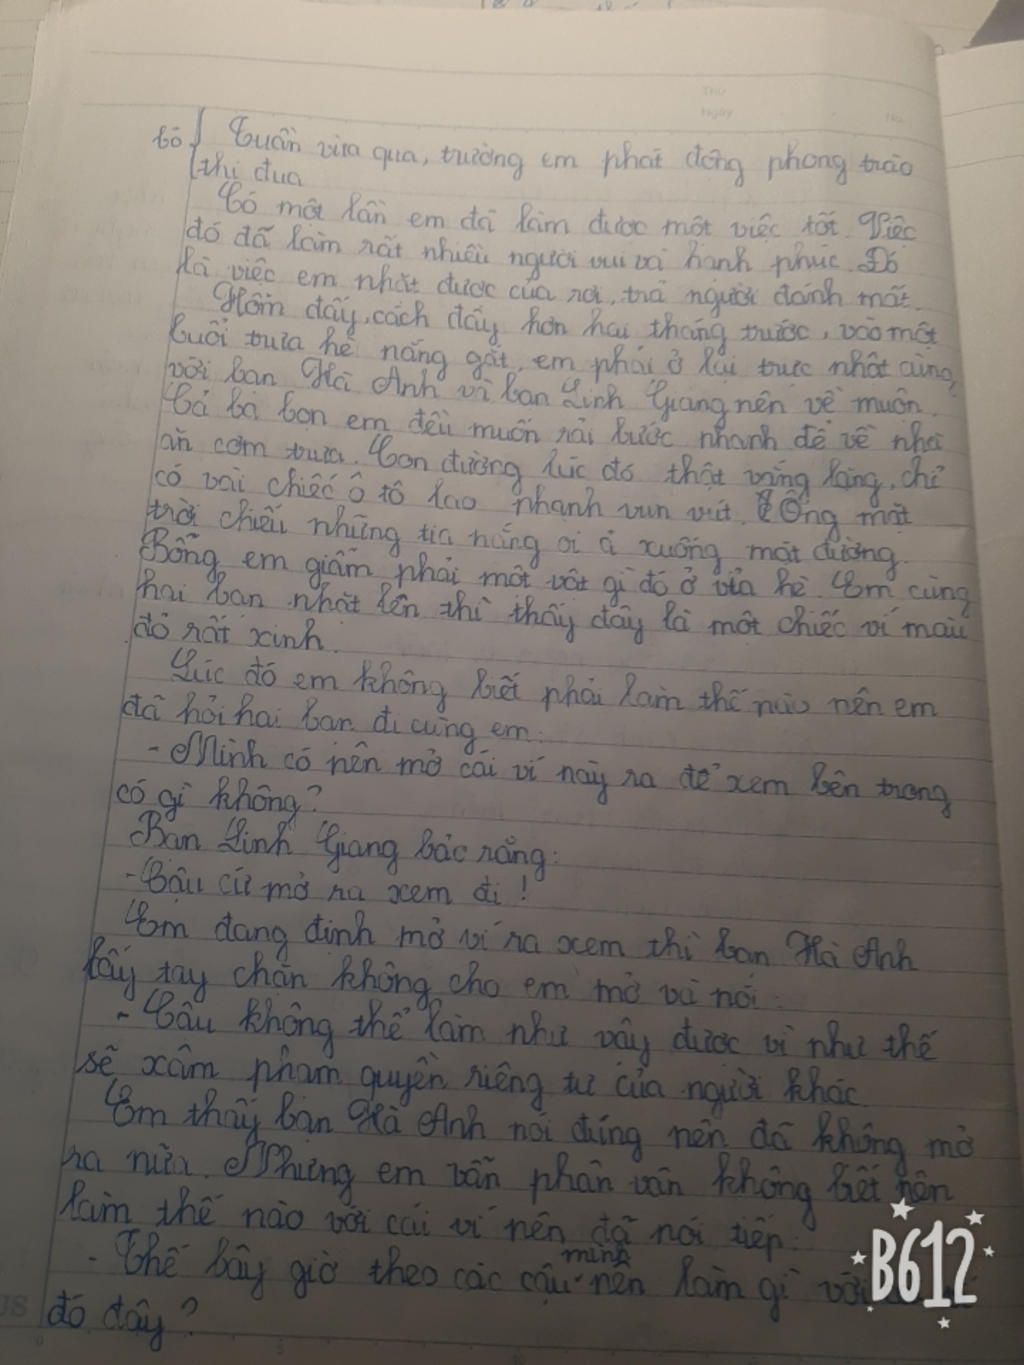 Thứ
Ngày
No.
bỏ { Tuần vừa qua, trường em phát động phong trào
thi đua
Có một lần em đã làm được một việc tốt. Việc
đó đã làm rất nhiều người vui và hạnh phúc. Đó
là việc em nhặt được của rơi, trả người đánh mất.
Hôm đấy, cách đây hơn hai tháng trước, vào một
buổi trưa hè nắng gắt, em phải ở lại trực nhật cùng
với bạn Hà Anh và bạn Linh Giang nên về muộn.
Cả ba bọn em đều muốn rải bước nhanh để về nhà
ăn cơm trưa. Con đường lúc đó thật vắng lặng, chỉ
có vài chiếc ô tô lao nhanh vun vút. Ông mặt
trời chiếu những tia nắng oi ả xuống mặt đường.
Bỗng em giẫm phải một vật gì đó ở vỉa hè. Em cùng
hai bạn nhặt lên thì thấy đây là một chiếc ví màu
đỏ rất xinh.
Lúc đó em không biết phải làm thế nào nên em
đã hỏi hai bạn đi cùng em:
- Mình có nên mở cái ví này ra để xem bên trong
có gì không?
Bạn Linh Giang bảo rằng:
- Cậu cứ mở ra xem đi!
Em đang định mở ví ra xem thì bạn Hà Anh
lấy tay chặn không cho em mở và nói:
- Cậu không thể làm như vậy được vì như thế
sẽ xâm phạm quyền riêng tư của người khác
Em thấy bạn Hà Anh nói đúng nên đã không mở
ra nữa. Nhưng em vẫn phân vân không biết nên
làm thế nào với cái ví nên đã nói tiếp:
- Thế bây giờ theo các cậu mình nên làm gì với
đó đây?
B612